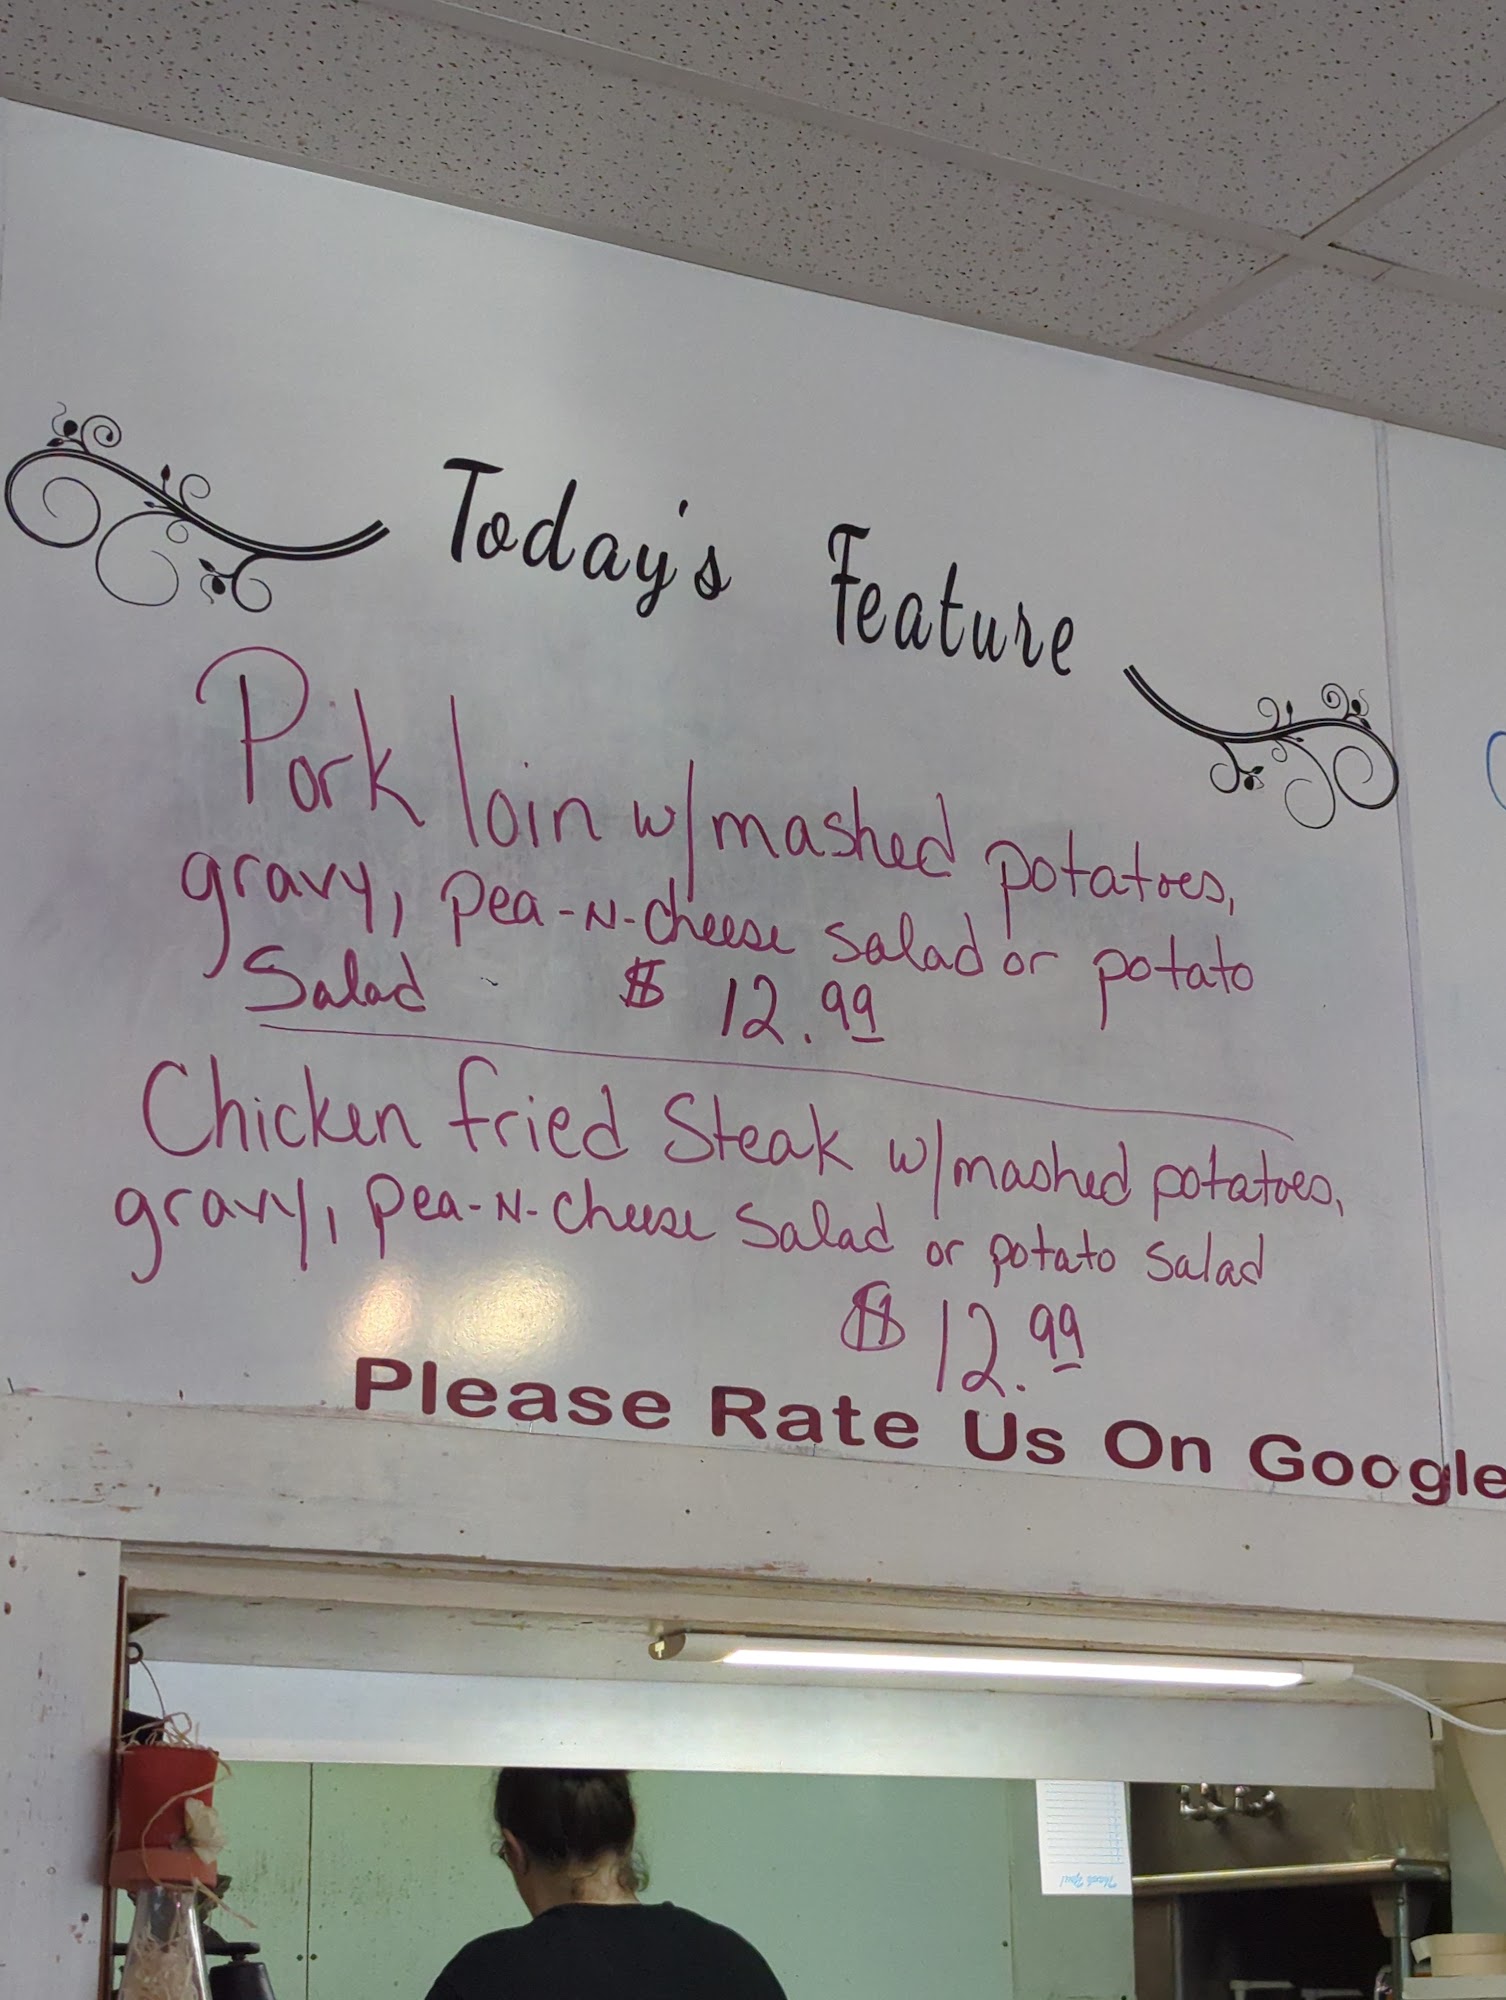 Today's Feature
Pork loin w/mashed potatoes,
gravy, pea-N-cheese salad or potato
Salad $ 12.99
Chicken fried Steak w/mashed potatoes,
gravy, pea-N-cheese Salad or potato Salad
$ 12.99
Please Rate Us On Google
Thank You!